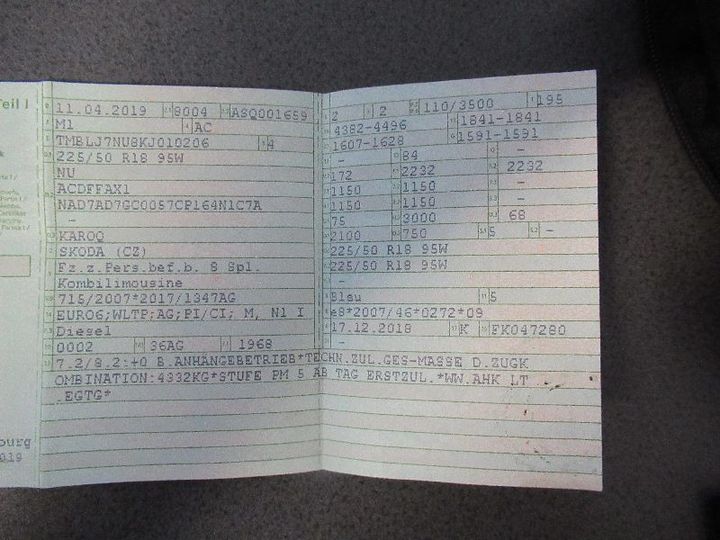 Teil I
11.04.2019 8004 ASQ001659
M1 AC
TMBLJ7NU8KJ010206 4
225/50 R18 95W
NU
ACDFFAX1
NAD7AD7GC0057CP164N1C7A
-
KAROQ
SKODA (CZ)
Fz.z.Pers.bef.b. 8 Spl.
Kombilimousine
715/2007*2017/1347AG
EURO6;WLTP;AG;PI/CI; M, N1 I
Diesel
0002 36AG 1968
2 2 110/3500 195
4382-4496 1841-1841
1607-1628 1591-1591
- 84 -
172 2232 2232
1150 1150 -
1150 1150 -
75 3000 68
2100 750 5 -
225/50 R18 95W
225/50 R18 95W
-
Blau 5
e8*2007/46*0272*09
17.12.2018 K FK047280
-
7.2/8.2:+0 B.ANHÄNGEBETRIEB*TECHN.ZUL.GES-MASSE D.ZUGK
OMBINATION:4332KG*STUFE PM 5 AB TAG ERSTZUL.*WW.AHK LT
.EGTG*
burg
019